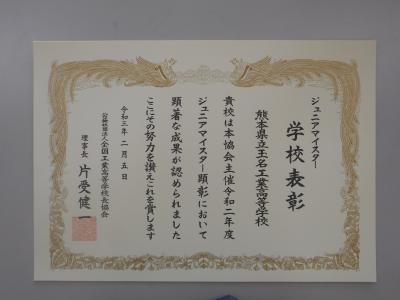 ジュニアマイスター
学校表彰
熊本県立玉名工業高等学校
貴校は本協会主催令和二年度
ジュニアマイスター顕彰において
顕著な成果が認められました
ここにその努力を讃えこれを賞します
令和三年二月五日
公益社団法人全国工業高等学校長協会
理事長 片受健一